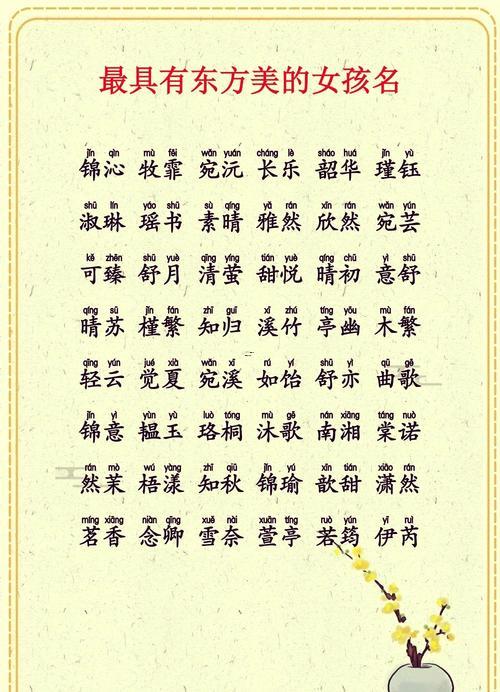 最具有东方美的女孩名
jǐn qìn mù fēi wǎn yuán cháng lè sháo huá jǐn yù
锦沁 牧霏 宛沅 长乐 韶华 瑾钰
shū lín yáo shū sù qíng yǎ rán xīn rán wǎn yún
淑琳 瑶书 素晴 雅然 欣然 宛芸
kě zhēn shū yuè qīng yíng tián yuè qíng chū yì shū
可臻 舒月 清萤 甜悦 晴初 意舒
qíng sū jǐn fán zhī guī xī zhú tíng yōu mù fán
晴苏 槿繁 知归 溪竹 亭幽 木繁
qīng yún jué xià wǎn xī rú yí shū yì qū gē
轻云 觉夏 宛溪 如饴 舒亦 曲歌
jǐn yì yùn yù luò tóng mù gē nán xiāng táng nuò
锦意 韫玉 珞桐 沐歌 南湘 棠诺
rán mò wú yàng zhī qiū jǐn yú xīn tián xiāo rán
然茉 梧漾 知秋 锦瑜 歆甜 潇然
míng xiāng niàn qīng xuě nài xuān tíng ruò yún yī ruì
茗香 念卿 雪奈 萱亭 若筠 伊芮